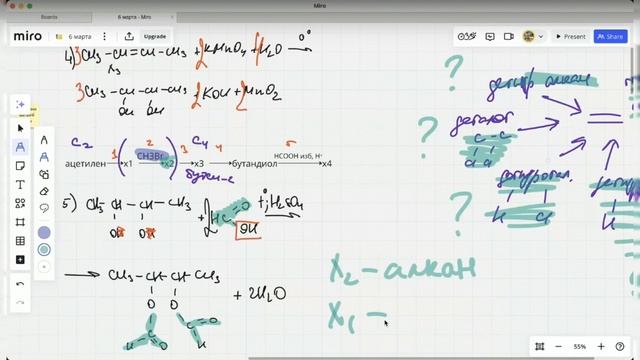 Miro
Boards
6 марта - Miro
miro
6 марта
Upgrade
Present
Share
4) 3CH₃-CH=CH-CH₃ + 2KMnO₄ + 4H₂O 0°
X₃
3CH₃-CH-CH-CH₃ + 2KOH + 2MnO₂
OH OH
C₂ 2 C₄
ацетилен 1 x1 CH3Br x2 3 x3 4 бутандиол HCOOH изб, H⁺ x4
бутен-2
5) CH₃-CH-CH-CH₃ + 2HC=O t°, H₂SO₄
OH OH OH
CH₃-CH-CH-CH₃ + 2H₂O
O O
C=O C=O
H H
? дегидр алкан
? дегалог
C-C
? дегидрогал.
X₂ - алкан
X₁ -
55%